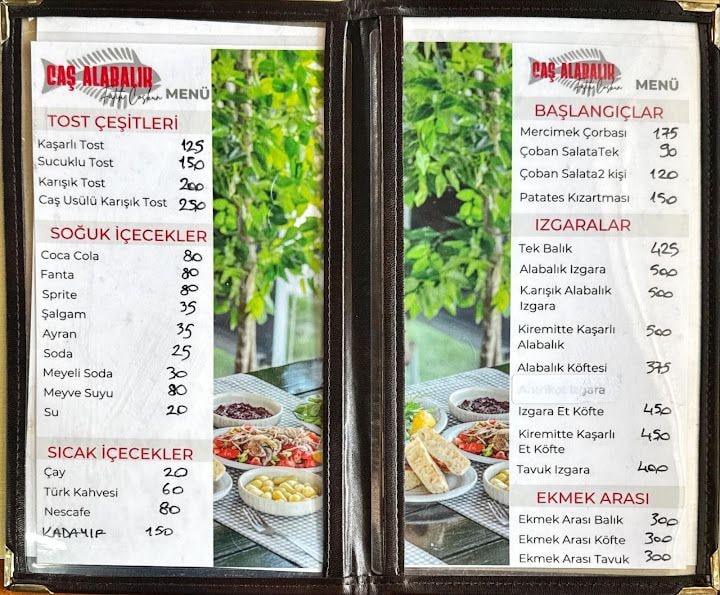 CAŞ ALABALIK
MENÜ
TOST ÇEŞİTLERİ
Kaşarlı Tost 125
Sucuklu Tost 150
Karışık Tost 200
Caş Usülü Karışık Tost 250
SOĞUK İÇECEKLER
Coca Cola 80
Fanta 80
Sprite 80
Şalgam 35
Ayran 35
Soda 25
Meyeli Soda 30
Meyve Suyu 80
Su 20
SICAK İÇECEKLER
Çay 20
Türk Kahvesi 60
Nescafe 80
KADAYIF 150
CAŞ ALABALIK
MENÜ
BAŞLANGIÇLAR
Mercimek Çorbası 175
Çoban SalataTek 90
Çoban Salata2 kişi 120
Patates Kızartması 150
IZGARALAR
Tek Balık 425
Alabalık Izgara 500
K.arışık Alabalık 500
Izgara
Kiremitte Kaşarlı 500
Alabalık
Alabalık Köftesi 375
Izgara
Izgara Et Köfte 450
Kiremitte Kaşarlı 450
Et Köfte
Tavuk Izgara 400
EKMEK ARASI
Ekmek Arası Balık 300
Ekmek Arası Köfte 300
Ekmek Arası Tavuk 300